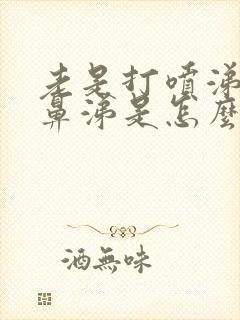 老是打喷涕
鼻涕是怎麼
酒無味